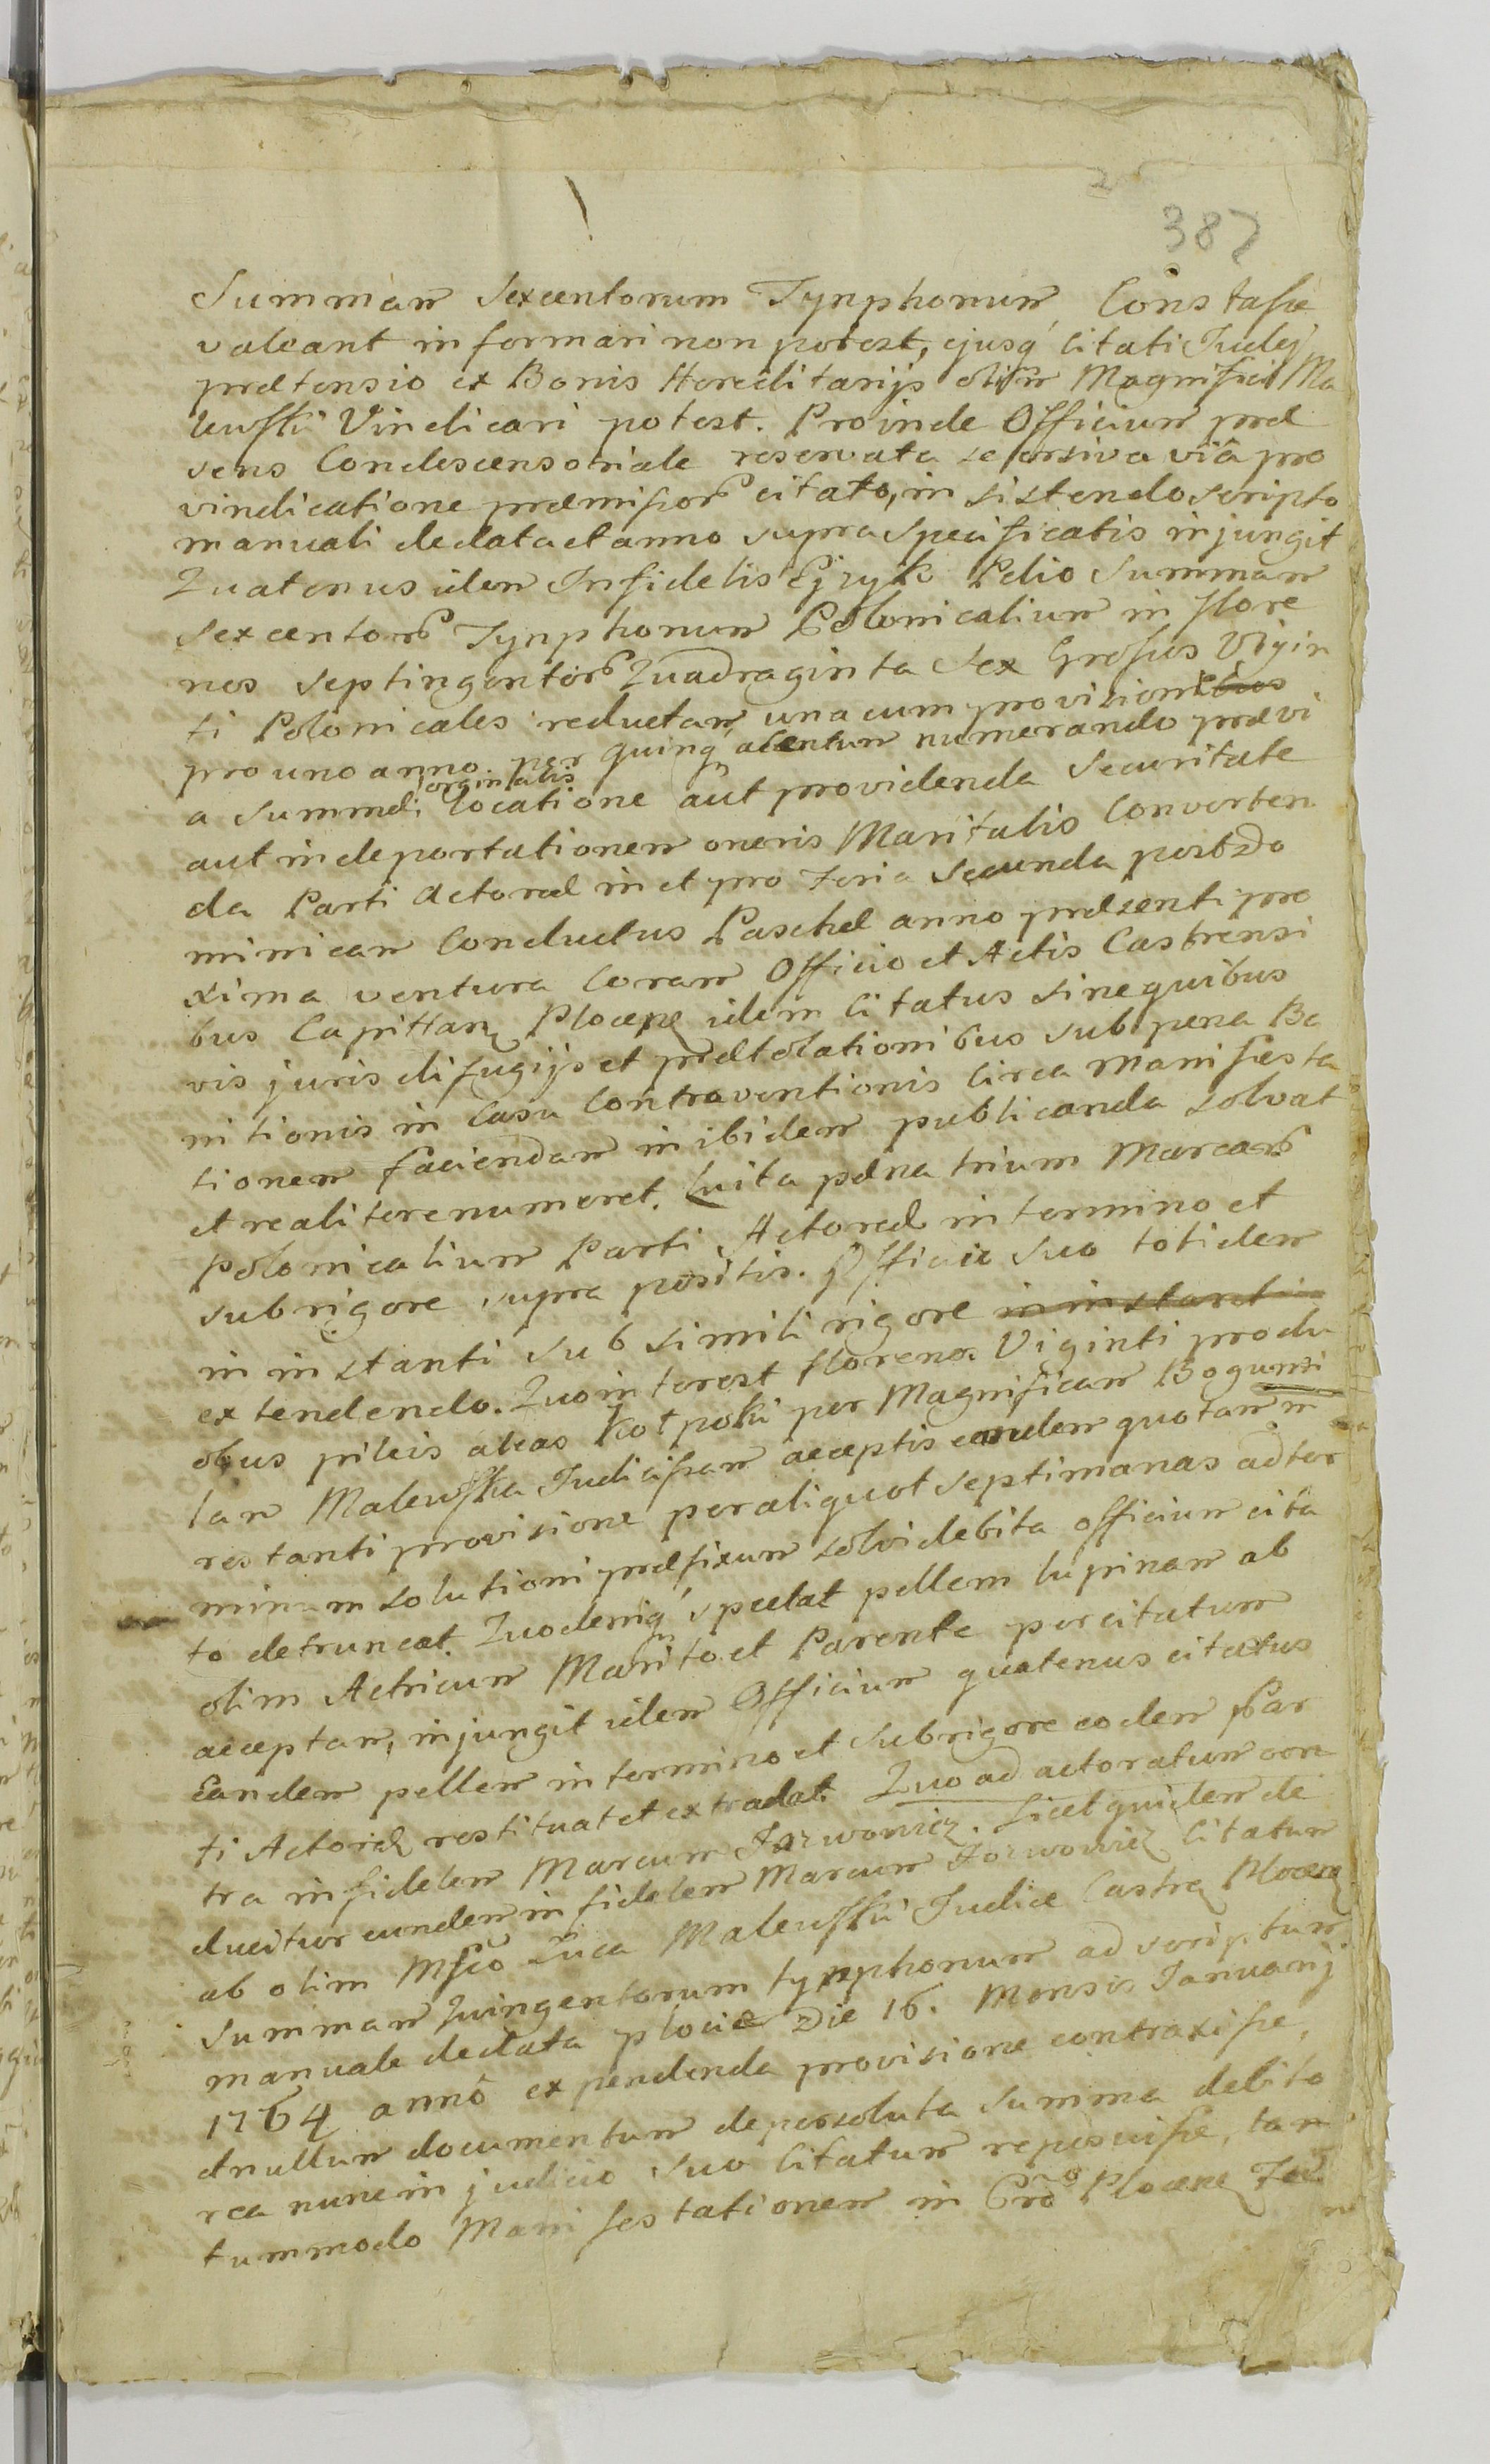 387
Summam Sexcentorum Tynphonum Constasse
valeant informari non potest, ejusq́ Citati Judej
prætensio ex Bonis Hereditarijs olim Magnifici Ma
lewski Vindicari potest. Proinde Officium præ
sens Condescensoriale reservata seorsiva viâ pro
vindicatione præmissor citato, in sistendo scripto
manuali de data et anno supra specificatis injungit
Quatenus idem Infidelis Ejzyk Pelio Summam
Sexcentor Tynphonum Polonicalium in flore
nos septingentor Quadraginta Sex Grossos Vigin
ti Polonicales reductam una cum provisione
pro uno anno per quinq́ a centum numerando prævi
a summæ originalis locatione aut providenda Securitate
aut in deportationem oneris Maritalis Converten
da Parti Actoreæ in et pro Feria Secunda post Do
minicam Conductus Paschæ anno præsenti pro
xima ventura Coram Officio et Actis Castrensi
bus Capittan Plocen idem Citatus sine quibus
vis juris diffugijs et prætolationibus sub pena Ba
nitionis in Casu Contraventionis Circa Manifesta
tionem faciendam inibidem publicanda solvat
et realiter enumeret. Luita pæna trium Marcar
polonicalium Parti Actoreæ in termino et
sub rigore supra positis. Officio suo totidem
in instanti sub simili rigore in instanti
extendendo. Quo interest florenos Viginti prodẜ
obus pileis alias Kołpaki per Magnificam Bogumi
lam Malewska Judicissam acceptis eandem quotam in
restanti provisione per aliquot septimanas ad ter
minum solutioni præfixum solvi debita officium cita
to detruncat. Quo deniq́ spectat pellem lupinam ab
olim Actricum Marito et Parente per citatum
acceptam, injungit idem Officium quatenus citatus
Eandem pellem in termino et sub rigore eodem Par
ti Actoreæ restituat et extradat. Quo ad actoratum con
tra infidelem Marcum Jozwowicz. Licet quidem de
ducitur eundem infidelem Marcum Jozwowicz Citatum
ab olim Mfico Luca Malewski Judice Castren Plocen
Summam Quingentorum tynphonum ad scriptum
manuale de data plociæ Die 16. Mensis Januarij
1764 annô expendenda provisione contraxisse,
et nullum documentum de persoluta summa debito
rea nunc in judicio suo Citatum reposuisse, tan
tummodo Manifestationem in Cro Plocen